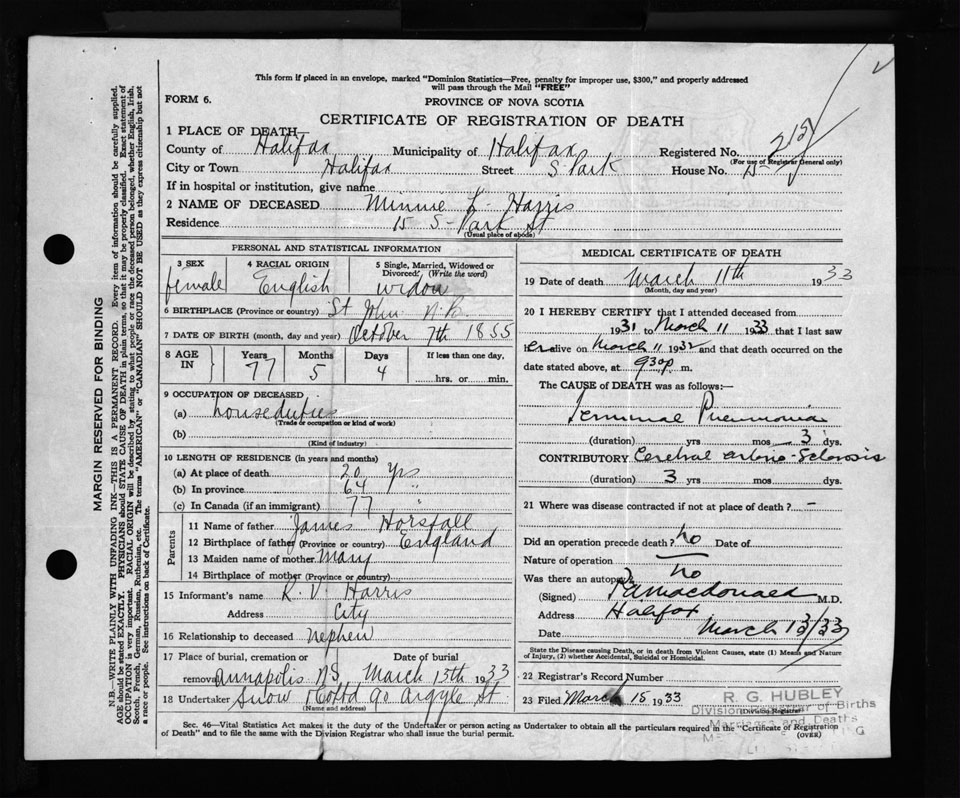 This form if placed in an envelope, marked "Dominion Statistics—Free, penalty for improper use, $300," and properly addressed
will pass through the Mail "FREE"
FORM 6.
PROVINCE OF NOVA SCOTIA
CERTIFICATE OF REGISTRATION OF DEATH
1 PLACE OF DEATH—
County of Halifax Municipality of Halifax Registered No.
(For use of Registrar General only)
City or Town Halifax Street S Park House No. 15
If in hospital or institution, give name
2 NAME OF DECEASED Minnie L. Harris
Residence 15 S- Park St
(Usual place of abode)
PERSONAL AND STATISTICAL INFORMATION
3 SEX 4 RACIAL ORIGIN 5 Single, Married, Widowed or Divorced (Write the word)
female English widow
6 BIRTHPLACE (Province or country) St John N.B.
7 DATE OF BIRTH (month, day and year) October 7th 1855
8 AGE IN Years Months Days If less than one day.
77 5 4 hrs. or min.
9 OCCUPATION OF DECEASED
(a) house duties
(Trade or occupation or kind of work)
(b)
(Kind of industry)
10 LENGTH OF RESIDENCE (in years and months)
(a) At place of death 20 yrs
(b) In province 64 "
(c) In Canada (if an immigrant) 77 "
Parents
11 Name of father James Horsfall
12 Birthplace of father (Province or country) England
13 Maiden name of mother Mary
14 Birthplace of mother (Province or country)
15 Informant's name R. V. Harris
Address City
16 Relationship to deceased nephew
17 Place of burial, cremation or removal Date of burial
Annapolis N.S. March 13th 1933
18 Undertaker Snow & Co Ltd 90 Argyle St.
(Name and address)
MEDICAL CERTIFICATE OF DEATH
19 Date of death March 11th 1933
(Month, day and year)
20 I HEREBY CERTIFY that I attended deceased from
1931 to March 11 1933 that I last saw
her alive on March 11 1932 and that death occurred on the
date stated above, at 930p m.
The CAUSE of DEATH was as follows:—
Terminal Pneumonia
(duration) yrs mos 3 dys.
CONTRIBUTORY Cerebral arterio-sclerosis
(duration) 3 yrs. mos. dys.
21 Where was disease contracted if not at place of death? —
Did an operation precede death? no Date of
Nature of operation
Was there an autopsy? no
(Signed) M.D.
Address Halifax
Date March 13/33
State the Disease causing Death, or in death from Violent Causes, state (1) Means and Nature
of Injury, (2) whether Accidental, Suicidal or Homicidal.
22 Registrar's Record Number
23 Filed March 15 1933
(Division Registrar)
R. G. HUBLEY
Division Registrar of Births
Marriages and Deaths
Sec. 46—Vital Statistics Act makes it the duty of the Undertaker or person acting as Undertaker to obtain all the particulars required in the "Certificate of Registration
of Death" and to file the same with the Division Registrar who shall issue the burial permit.
(OVER)
MARGIN RESERVED FOR BINDING
N.B.—WRITE PLAINLY WITH UNFADING INK—THIS IS A PERMANENT RECORD. Every item of information should be carefully supplied.
AGE should be stated EXACTLY. PHYSICIANS should STATE CAUSE OF DEATH in plain terms, so that it may be properly classified. Exact statement of
OCCUPATION is very important. RACIAL ORIGIN will be described by stating to what people or race the deceased person belonged, whether English, Irish,
Scotch, French, German, Russian, Ruthenian, etc. The terms "AMERICAN" or "CANADIAN" SHOULD NOT BE USED as they express citizenship but not
a race or people. See instructions on back of Certificate.